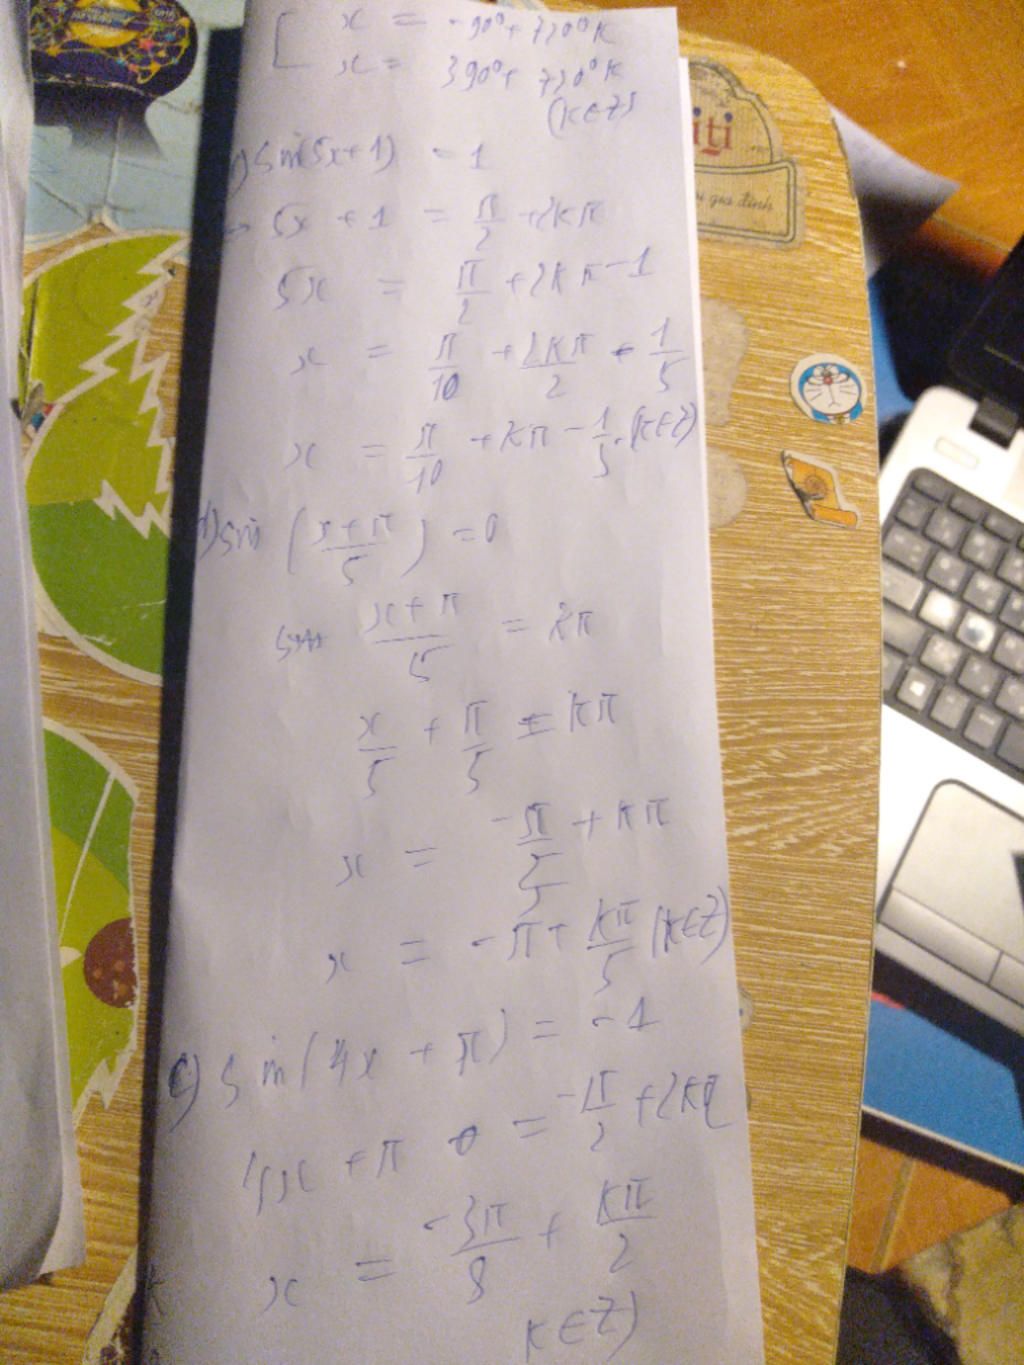 [ x = -90° + 720°K
x = 390° + 720°K
(K∈Z)
c) Sin(5x+1) = 1
→ 5x + 1 = π/2 + 2kπ
5x = π/2 + 2kπ - 1
x = π/10 + 2kπ/2 - 1/5
x = π/10 + kπ - 1/5. (k∈Z)
d) sin ( (x+π)/5 ) = 0
(x+π)/5 = kπ
x/5 + π/5 = kπ
x = -π/5/5 + kπ
x = -π + kπ/5 (k∈Z)
e) Sin(4x + π) = -1
4x + π = -π/2 + 2kπ
x = -3π/8 + kπ/2
k∈Z)
iti
gia đình